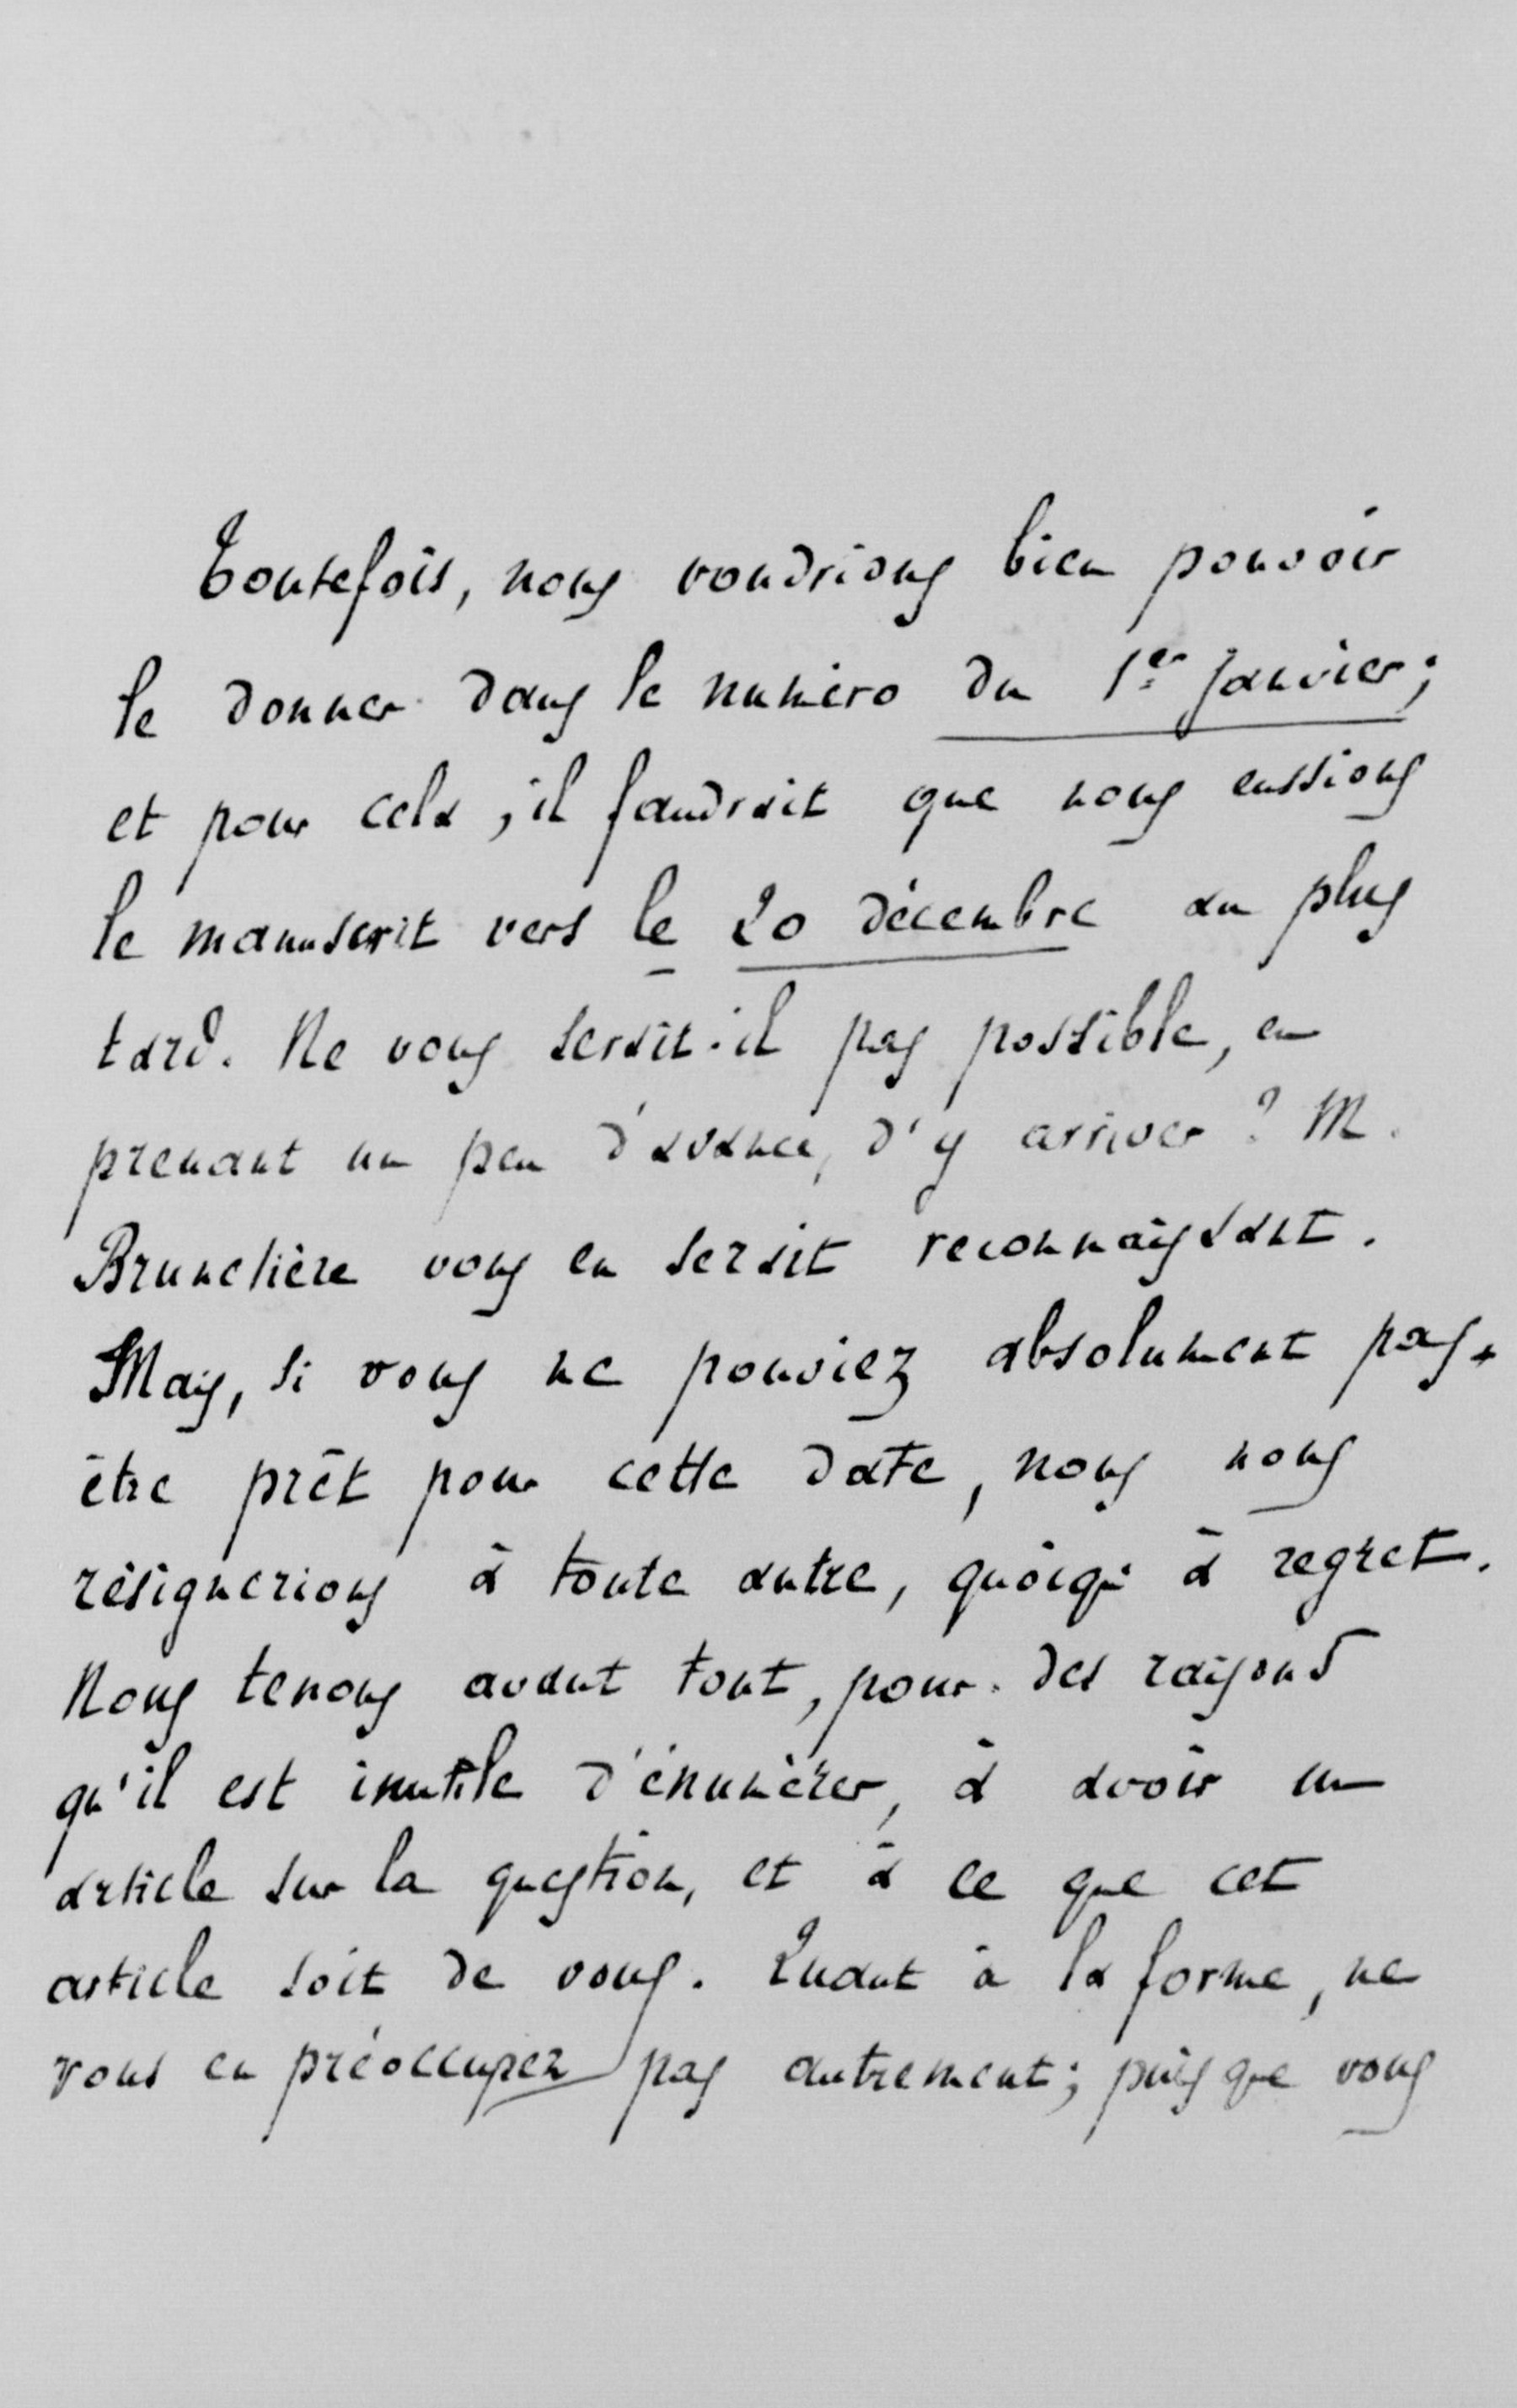 Toutefois, nous voudrions bien pouvoir
le donner dans le numéro du 1er Janvier;
et pour cela, il faudrait que nous eussions
le manuscrit vers le 20 décembre au plus
tard. Ne vous serait-il pas possible, en
prenant un peu d'avance, d'y arriver? M.
Brunetière vous en serait reconnaissant.
Mais, si vous ne pouviez absolument pas
être prêt pour cette date, nous nous
résignerions à toute autre, quoiqu'à regret.
Nous tenons avant tout, pour des raisons
qu'il est inutile d'énumérer, à avoir un
article sur la question, et à ce que cet
article soit de vous. Quant à la forme, ne
vous en préoccupez pas autrement; puisque vous